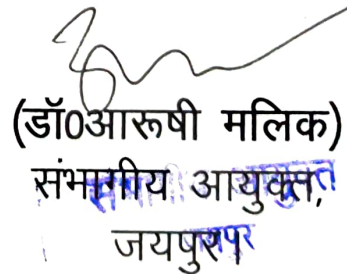 (डॉ0आरूषी मलिक)
संभागीय आयुक्त,
जयपुर।